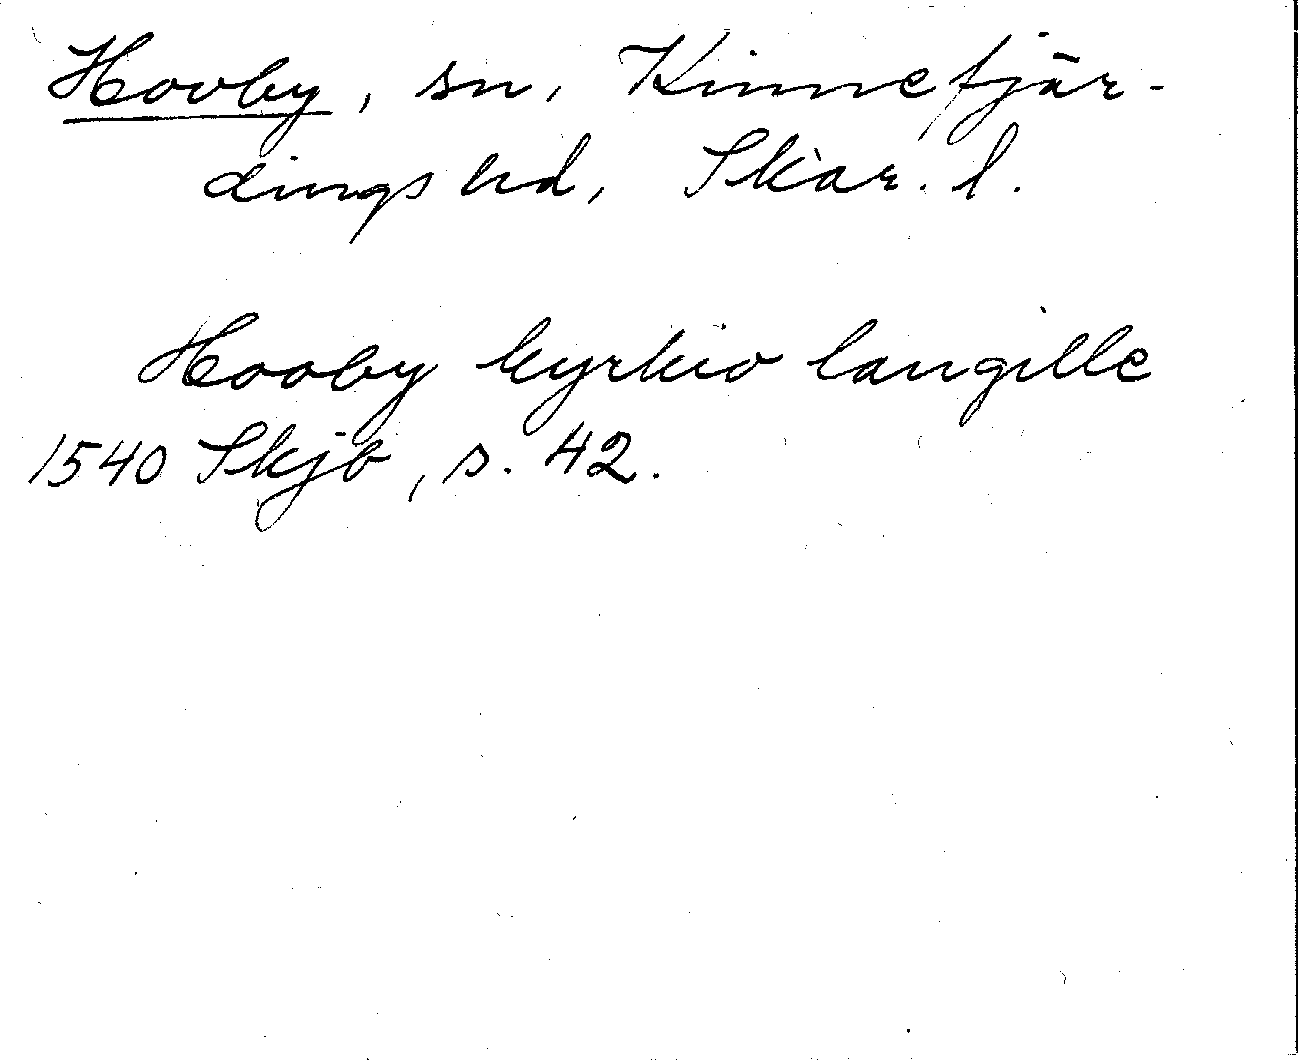 Hovby, sn, Kinnefjär-
dings hd, Skar. l.
Hooby kyrkio langille
1540 Skjb, s. 42.